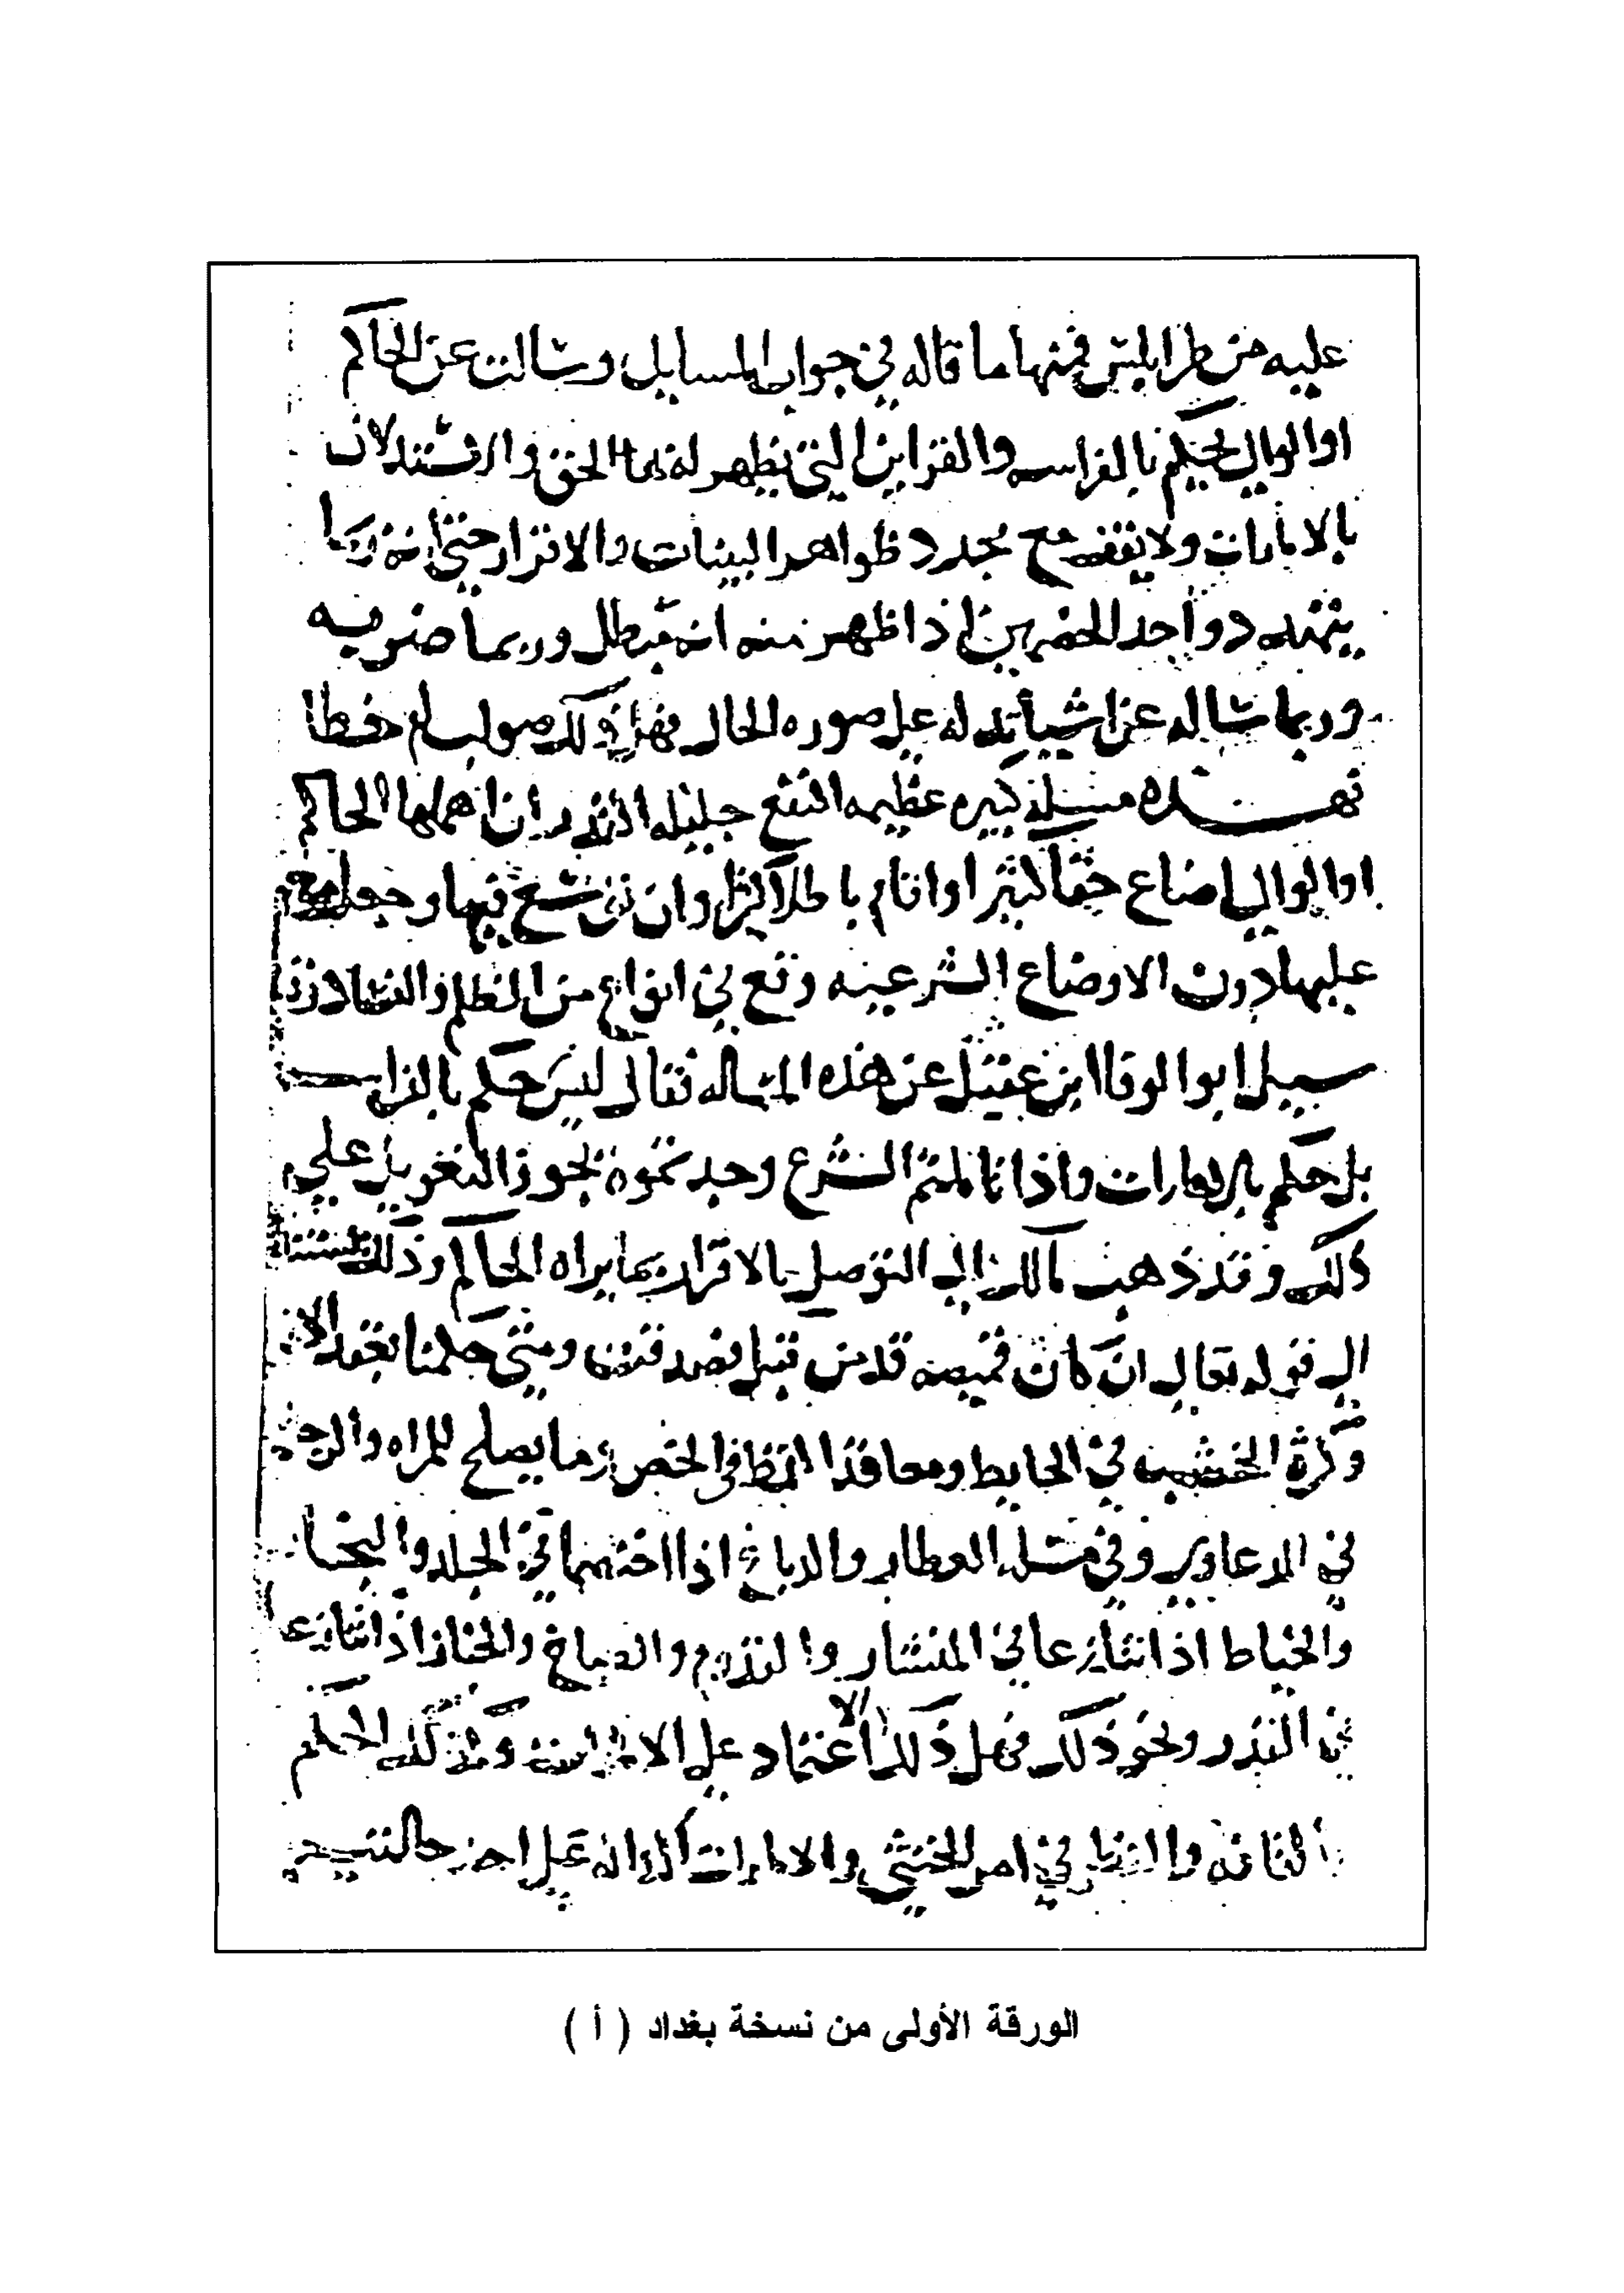 عليه من طرابلس فمنها ما قاله في جواب المسايل وسالت عن الحاكم
او الوالي يحكم بالفراسه والقراين التي يظهر له بها الحق والاستدلال
بالامارات ولا يقف مع مجرد ظواهر البينات والاقرار حتى انه ربما
يتهدد احد الخصمين اذا ظهر منه انه مبطل وربما ضربه
وربما ساله عن اشيا تدله على صوره الحال فهل ذلك صواب ام خطا
فهذه مسلة كبيره عظيمه النفع جليله القدر ان اهملها الحاكم
او الوالي اضاع حقا كثيرا واقام باطلا كثيرا وان توسع فيها وجعل معوله
عليها دون الاوضاع الشرعيه وقع في انواع من الظلم والفساد وقد
سيل ابوا الوفا ابن عقيل عن هذه المساله فقال ليس حكم بالفراسه
بل حكم بالامارات واذا تاملتم الشرع وجدتموه يجوز التعويل على
ذلك وقد ذهب مالك الى التوصل بالاقرار بما يراه الحاكم وذلك
الى قوله تعالى ان كان قميصه قد من قبل فصدقت ومتى حكمنا بعقد الا
وكثرة الخشب في الحايط ومعاقد القمط في الخص وما يصلح للمراه والرجل
في الدعاوي وفي مسلة العطار والدباغ اذا اختصما في الجلد والنجار
والخياط اذا تنازعا في المنشار والقدوم والطباخ والخباز اذا تنازعا
في القدر ونحو ذلك فهل ذلك الا اعتماد على الامارات وكذلك الحكم
بالقافه والنظر في امر الخنثى والامارات الداله على احد حالتيه
الورقة الأولى من نسخة بغداد ( أ )